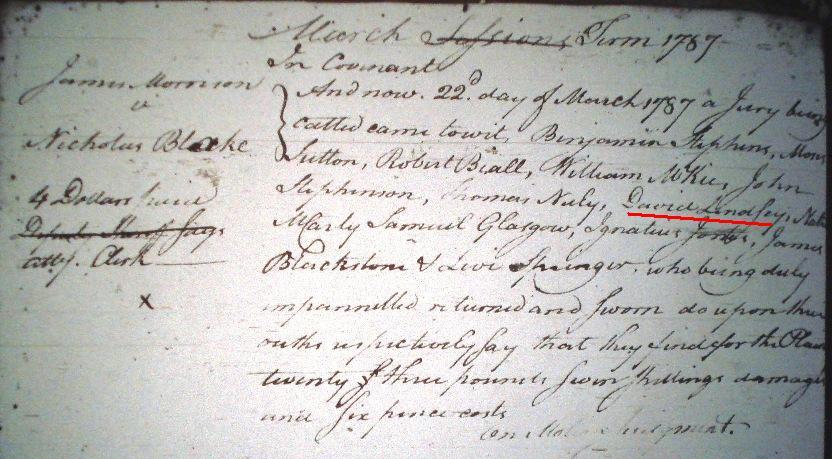 March Sessions Term 1787
James Morrison
v
Nicholas Blacke
4 Dollars
Deputy
atty. Clerk
x
In Covenant
And now. 22d. day of March 1787 a Jury being
called came towit, Benjamin Stephens, Moses
Sutton, Robert Beall, William McKee, John
Stephinson, Thomas Nuly, David Lindsey,
Marly Samuel Glasgow, Ignatius Jones, James
Blackstone & Levi Springer. who being duly
impannelled returned and sworn do upon their
oaths respectively say that they find for the
twenty three pounds seven shillings damages
and six pence costs
Judgment.